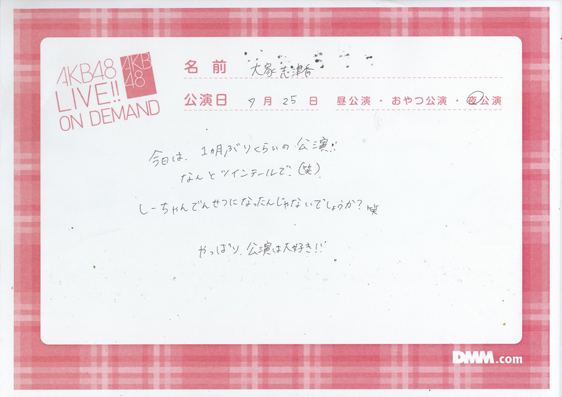 AKB48
LIVE!!
ON DEMAND
AKB
48
名前 大家志津香
公演日 9月25日 昼公演・おやつ公演・夜公演
今日は、1ヵ月ぶりくらいの公演!!
なんとツインテールで(笑)
しーちゃんでんせつになったんじゃないでしょうか?笑
やっぱり、公演は大好き!!
DMM.com